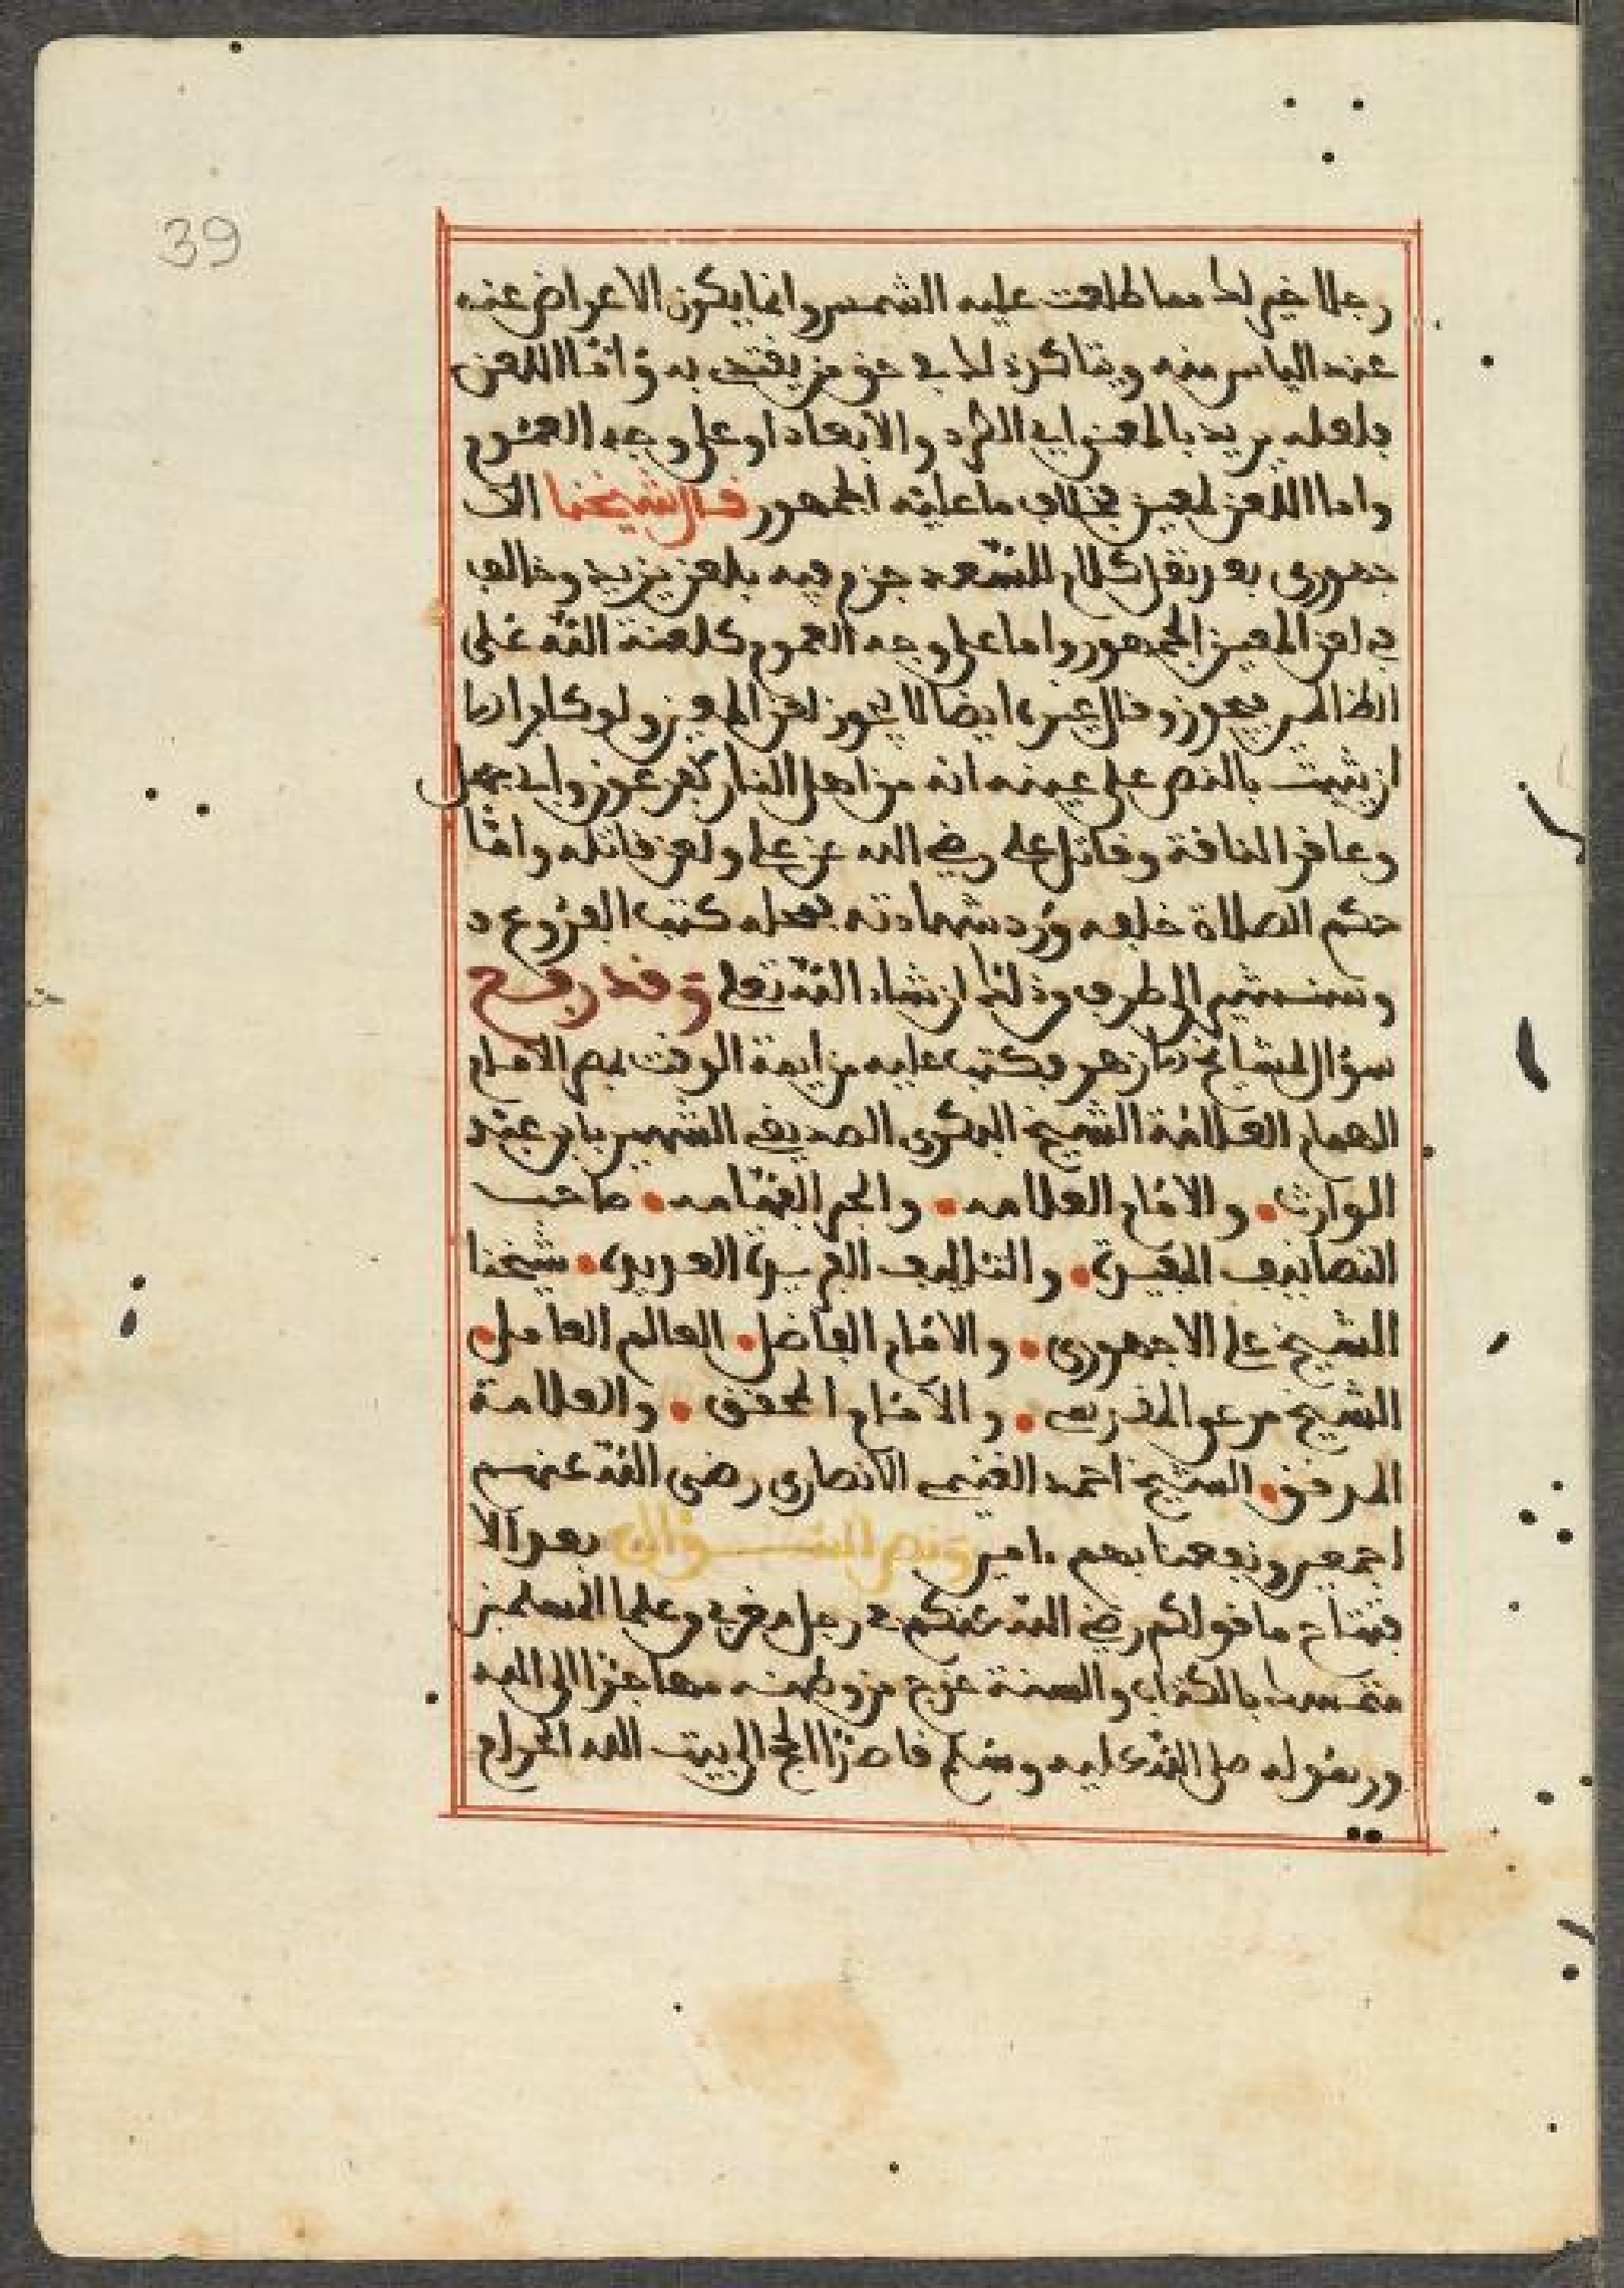 39
رجلا خير لك مما طلعت عليه الشمس وانما يكون الاعراض عنه
عند الياس منه ويتاكد ذلك في حق من يقتدى به واما اللعن
فلعله يريد بالمعنى اي الطرد والابعاد او على وجه العموم
واما اللعن لمعين بخلاف ما عليه الجمهور قال شيخنا الا
جهورى بعد نقل كلام للسعد جزم فيه بلعن يزيد وخالف
في لعن المعين الجمهور واما على وجه العموم كلعنة الله على
الظالمين فيجوز وقال غيره ايضا لا يجوز لعن المعين ولو كافرا اما
ان يثبت بالنص على عينه انه من اهل النار كفرعون وابي جهل
وعاقر الناقة وقاتل على رضي الله عن علي ولعن قاتله واما
حكم الصلاة خلفه ورد شهادته فمحله كتب الفروع
وسنشير الى طرف من ذلك ان شاء الله تعلى وقد رفع
سؤال لمشايخ الازهر وكتب عليه من ايمة الوقت بمصر الامام
الهمام العلامة الشيخ البكرى الصديقي الشهير بابن عبد
الوارث والامام العلامه والحبر الفهامه صاحب
التصانيف المفيدة والتئاليف الفريدة العديدة شيخنا
الشيخ على الاجهورى والامام الفاضل العالم العامل
الشيخ مرعى المقدسي والامام المحقق والعلامة
المدقق الشيخ احمد الغنيمي الانصارى رضى الله عنهم
اجمعين ونفعنا بهم ءامين ونص السؤال بعد الا
فتتاح ما قولكم رضي الله عنكم في رجل مغربي وعلما المسلمين
متمسك بالكتاب والسنة خرج من وطنه مهاجرا الى الله
ورسوله صلى الله عليه وسلم قاصدا الحج الى بيت الله الحرام